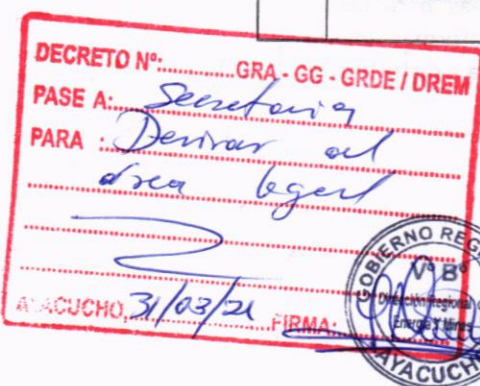 DECRETO Nº:..............GRA - GG - GRDE / DREM
PASE A: Secretaria
PARA : Derivar al
área legal
AYACUCHO, 31/03/21 FIRMA:
GOBIERNO REG
Vº Bº
Dirección Regional de
Energía y Minas
AYACUCHO